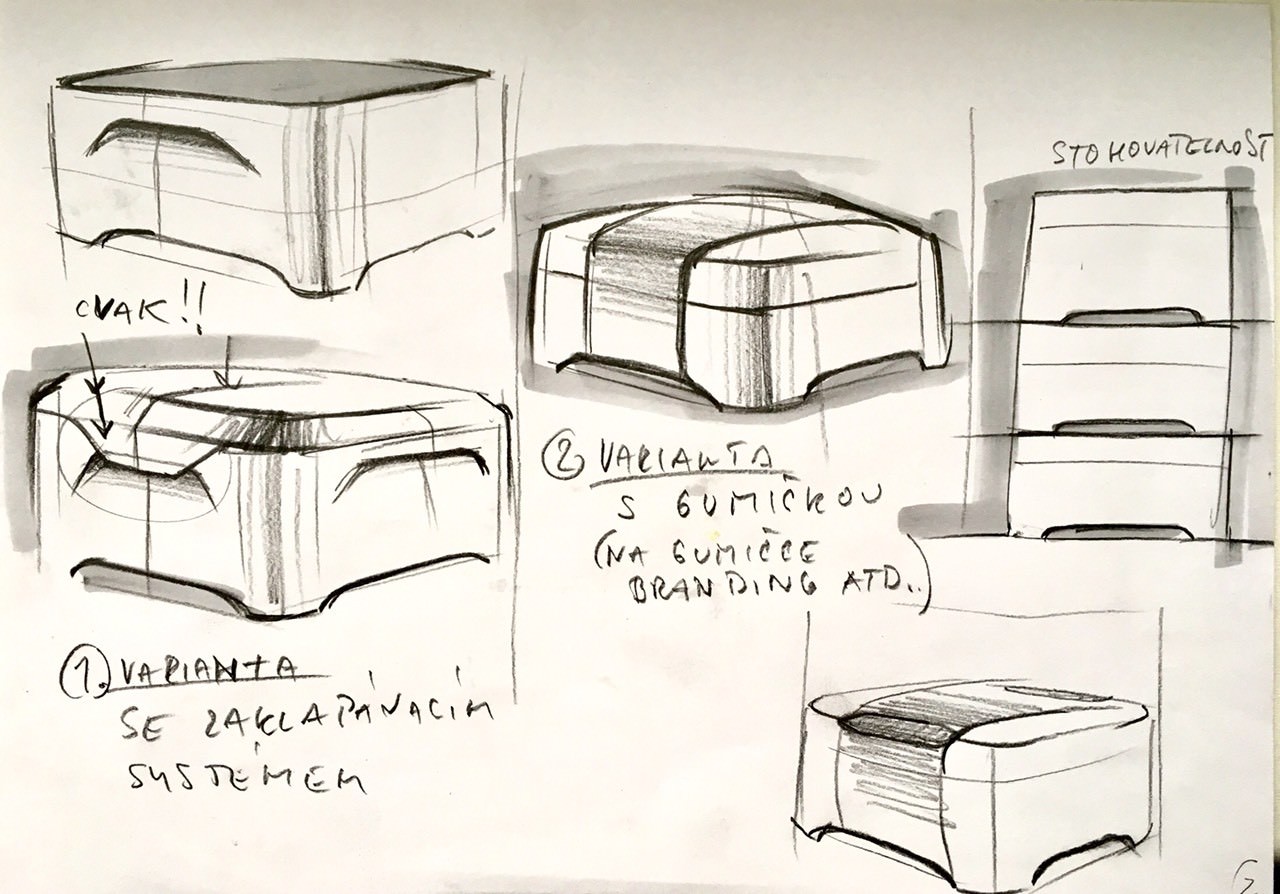 CVAK!!
1. VARIANTA
SE ZAKLAPÁVACÍM
SYSTÉMEM
2 VARIANTA
S GUMIČKOU
(NA GUMIČCE
BRANDING ATD..)
STOHOVATELNOST